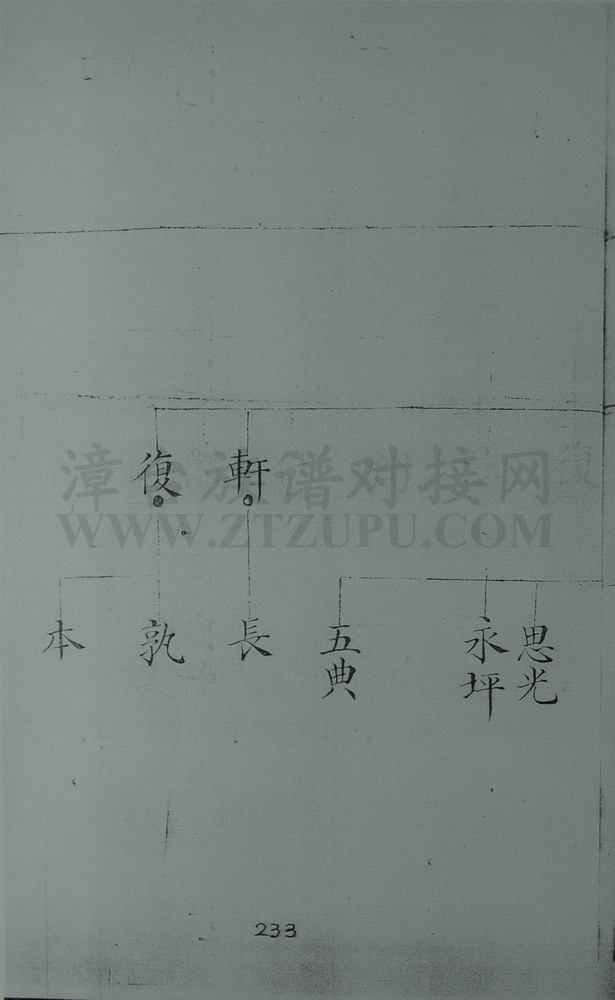 軒
復
思光
永坪
五典
長
孰
本
漳台族谱对接网
WWW.ZTZUPU.COM
233